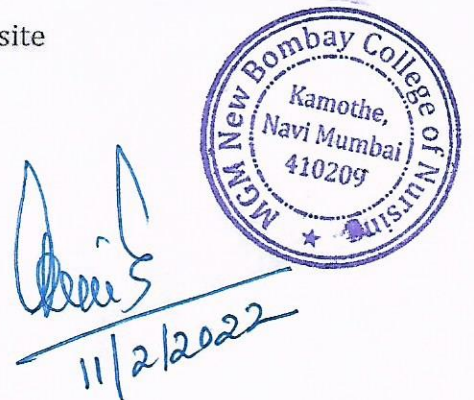 site
MGM New Bombay College of Nursing
Kamothe,
Navi Mumbai
410209
11/2/2022